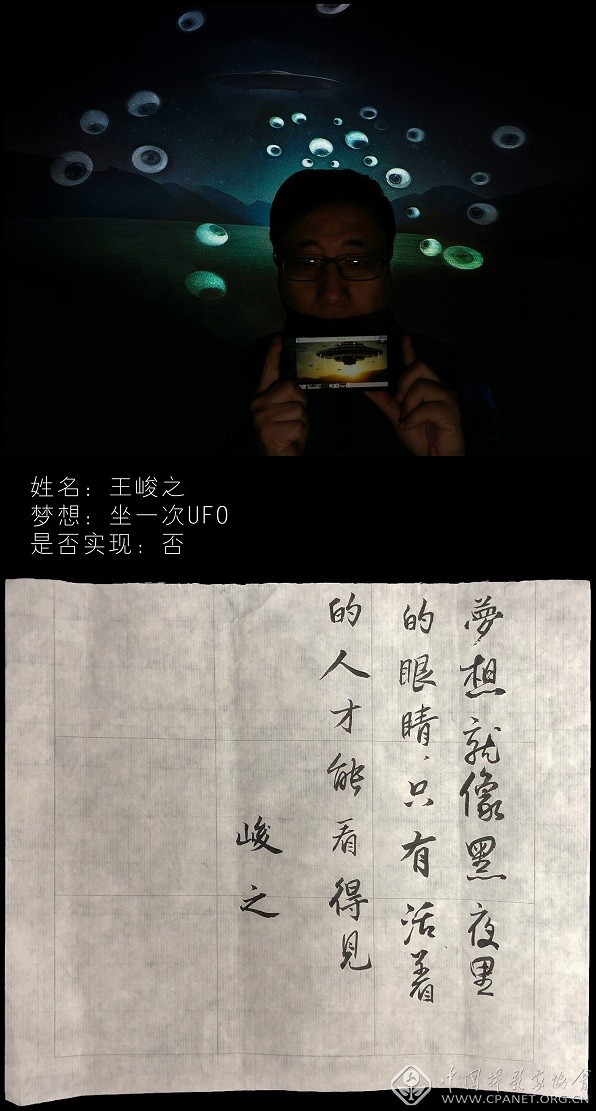 姓名：王峻之
梦想：坐一次UFO
是否实现：否
夢想就像黑夜里
的眼睛，只有活着
的人才能看得见
峻之
中国摄影家协会
WWW.CPANET.ORG.CN